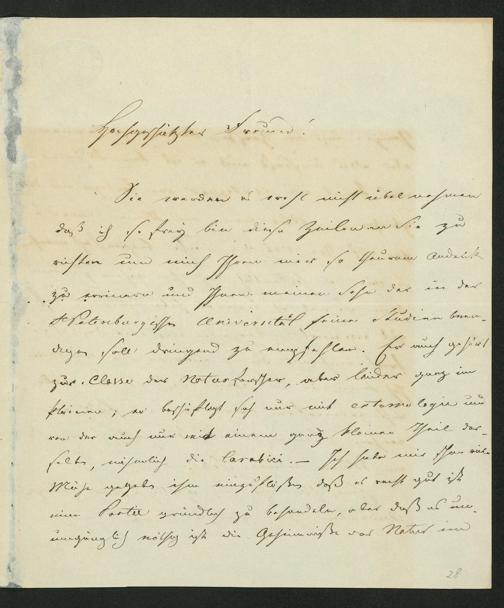 Hochgeschätzter Freund!
Sie werden es wohl nicht übel nehmen
daß ich so frey bin diese Zeilen an Sie zu
richten um mich Ihnen mir so theuren Andenk
zu erinnern und Ihnen meinen Sohn der in der
St Petersburgischen Universität seine Studien been-
digen soll dringend zu empfehlen. Er auch gehört
zur Classe der Naturforscher, aber leider ganz im
kleinen; er beschäftigt sich nur mit entomologie und
von der auch nur mit einem ganz kleinen Theil der-
selben, nähmlich die Carabici. — Ich habe mir schon viele
Mühe gegeben ihm einzuflößen daß es recht gut ist
eine Partie gründlich zu behandeln, aber daß es un-
umgänglich nöthig ist die Geheimnisse der Natur im
28